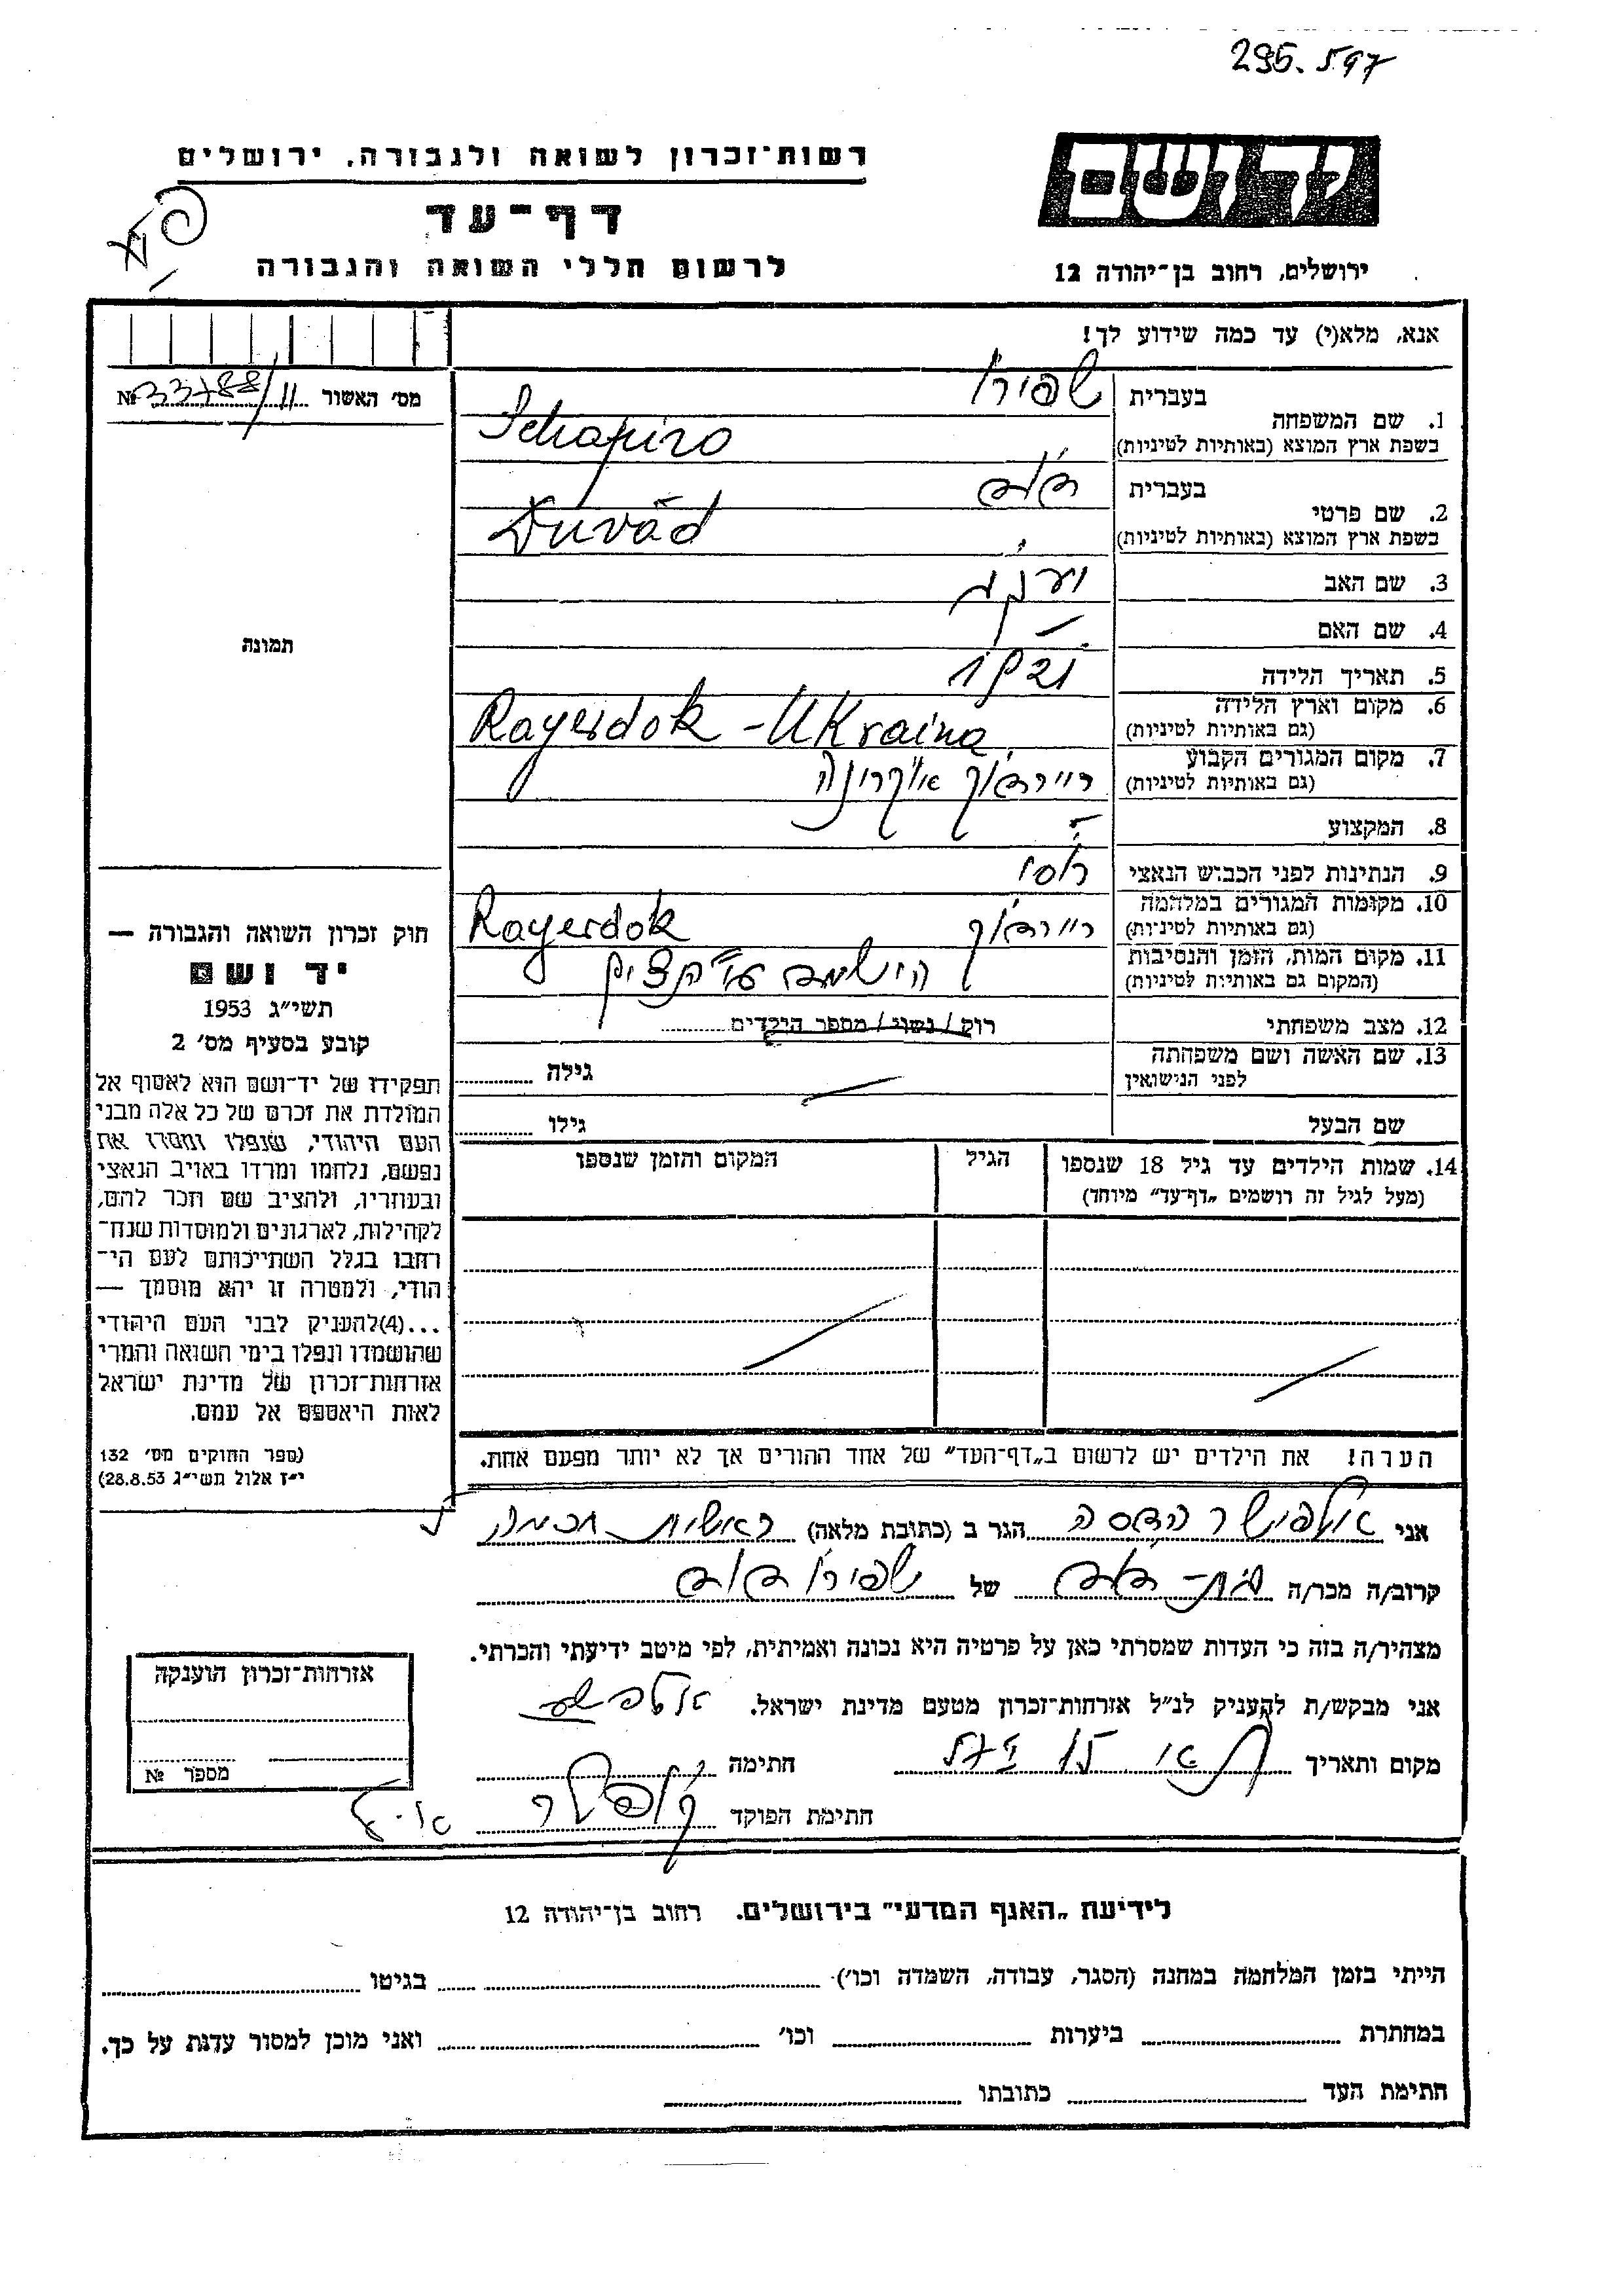 295.597
רשות־זכרון לשואה ולגבורה, ירושלים
יד ושם
דף־עד
לרשום חללי השואה והגבורה
ירושלים, רחוב בן־יהודה 12
אנא, מלא(י) עד כמה שידוע לך!
מס' האשור № 33788/11
בעברית שפירו
1. שם המשפחה
בשפת ארץ המוצא (באותיות לטיניות) Schapiro
בעברית דוד
2. שם פרטי
בשפת ארץ המוצא (באותיות לטיניות) Duvad
3. שם האב יעקב
4. שם האם –
תמונה
5. תאריך הלידה 1921
6. מקום וארץ הלידה
(גם באותיות לטיניות) Rayerdok - Ukraina
7. מקום המגורים הקבוע
(גם באותיות לטיניות)
8. המקצוע –
9. הנתינות לפני הכבוש הנאצי רוסי
10. מקומות המגורים במלחמה
(גם באותיות לטיניות) Rayerdok
11. מקום המות, הזמן והנסיבות
(המקום גם באותיות לטיניות)
12. מצב משפחתי רוק / נשוי / מספר הילדים
13. שם האשה ושם משפחתה
לפני הנישואין גילה
שם הבעל גילו
14. שמות הילדים עד גיל 18 שנספו הגיל המקום והזמן שנספו
(מעל לגיל זה רושמים „דף־עד" מיוחד)
הערה! את הילדים יש לרשום ב„דף־העד" של אחד ההורים אך לא יותר מפעם אחת.
חוק זכרון השואה והגבורה —
יד ושם
תשי"ג 1953
קובע בסעיף מס' 2
תפקידו של יד־ושם הוא לאסוף אל
המולדת את זכרם של כל אלה מבני
העם היהודי, שנפלו ומסרו את
נפשם, נלחמו ומרדו באויב הנאצי
ובעוזריו, ולהציב שם וזכר להם,
לקהילות, לארגונים ולמוסדות שנח־
רחבו בגלל השתייכותם לעם הי־
הודי, ולמטרה זו יהא מוסמך —
...(4)להעניק לבני העם היהודי
שהושמדו ונפלו בימי השואה והמרי
אזרחות־זכרון של מדינת ישראל
לאות היאספם אל עמם.
(ספר החוקים מס' 132
י"ז אלול תשי"ג 28.8.53)
אני אלפישר הדסה הגר ב (כתובת מלאה) ראשית חכמה
קרוב/ה מכר/ה בת-דוד של שפירו דוד
מצהיר/ה בזה כי העדות שמסרתי כאן על פרטיה היא נכונה ואמיתית, לפי מיטב ידיעתי והכרתי.
אני מבקש/ת להעניק לנ"ל אזרחות־זכרון מטעם מדינת ישראל.
מקום ותאריך חתימה
חתימת הפוקד
אזרחות־זכרון הוענקה
מספר №
לידיעת „האגף המדעי" בירושלים. רחוב בן־יהודה 12
הייתי בזמן המלחמה במחנה (הסגר, עבודה, השמדה וכו') בגיטו
במחתרת ביערות וכו' ואני מוכן למסור עדות על כך.
חתימת העד כתובתו